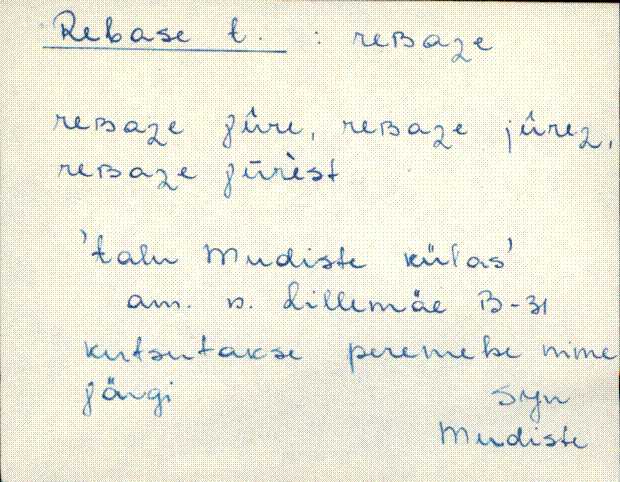 Rebase t. : reʙaʒe
reʙaʒe jûre, reʙaʒe jûrez,
reʙaʒe jūrèst
'talu Mudiste külas'
am. n. Lillemäe B-31
kutsutakse peremehe nime
järgi Syn
Mudiste